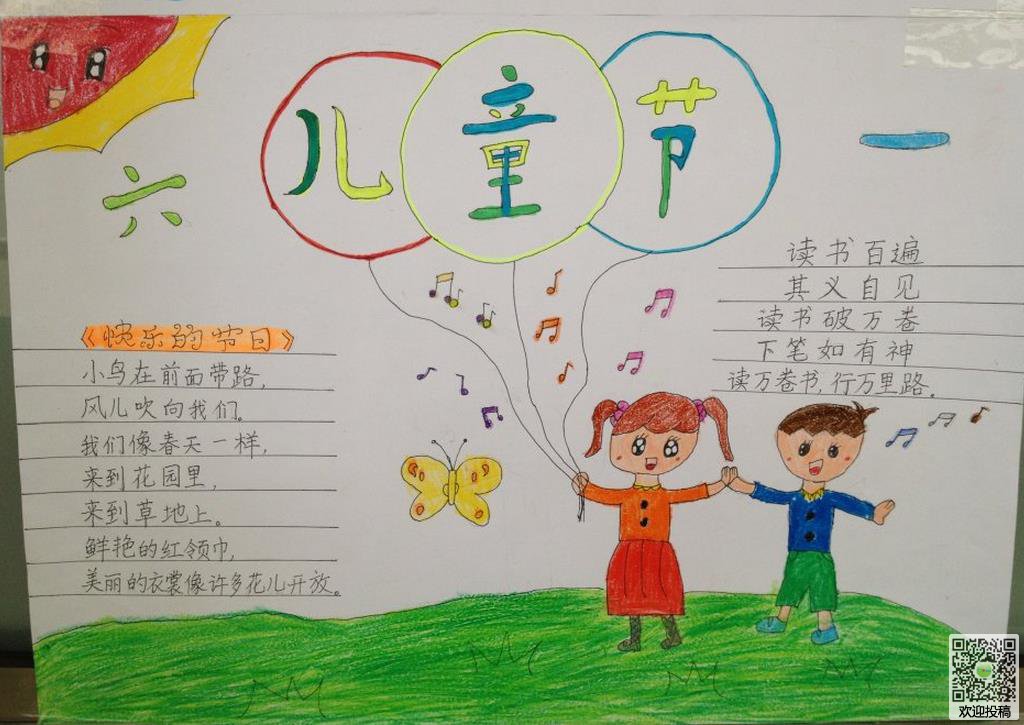 六一
儿童节
读书百遍
其义自见
读书破万卷
下笔如有神
读万卷书,行万里路。
《快乐的节日》
小鸟在前面带路,
风儿吹向我们。
我们像春天一样,
来到花园里,
来到草地上。
鲜艳的红领巾,
美丽的衣裳像许多花儿开放。
欢迎投稿